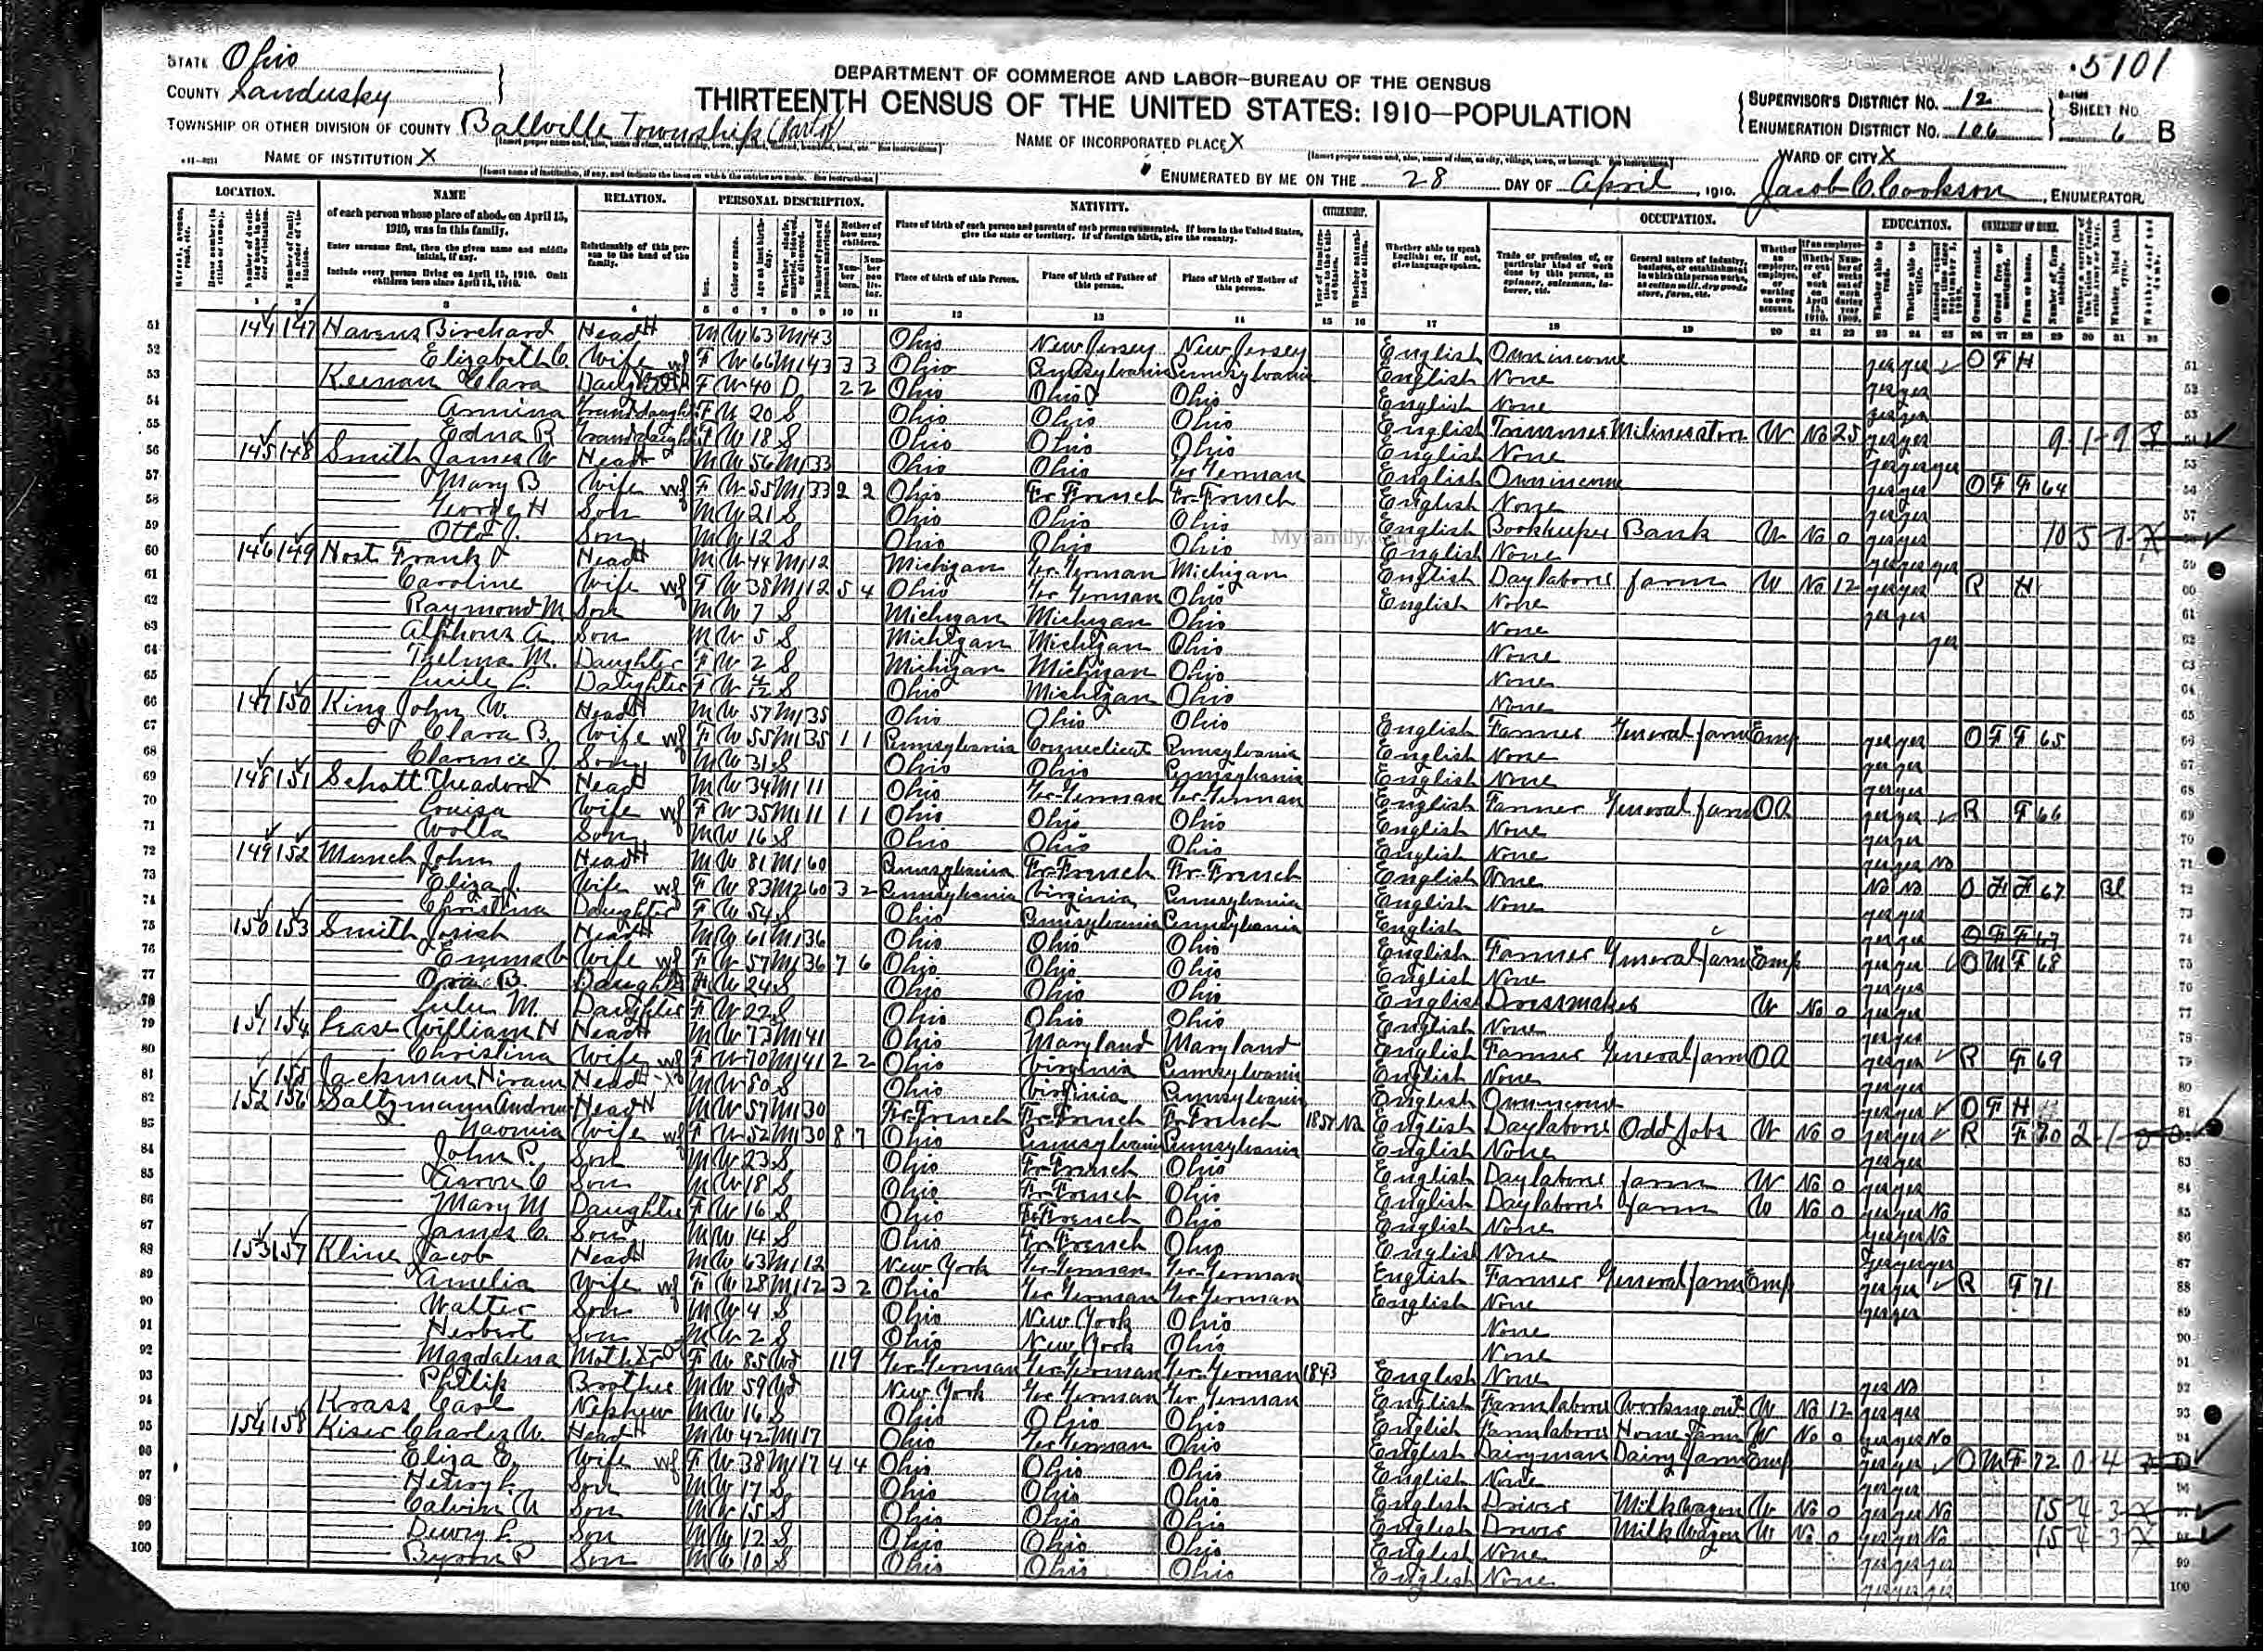 .5101
STATE Ohio
COUNTY Sandusky
TOWNSHIP OR OTHER DIVISION OF COUNTY Ballville Township (Part of)
NAME OF INSTITUTION X
DEPARTMENT OF COMMERCE AND LABOR—BUREAU OF THE CENSUS
THIRTEENTH CENSUS OF THE UNITED STATES: 1910—POPULATION
NAME OF INCORPORATED PLACE X
ENUMERATED BY ME ON THE 28 DAY OF April, 1910. Jacob C. Cookson, ENUMERATOR.
SUPERVISOR'S DISTRICT No. 12
ENUMERATION DISTRICT No. 106
SHEET No. 6 B
WARD OF CITY X
LOCATION. NAME RELATION. PERSONAL DESCRIPTION. NATIVITY. CITIZENSHIP. OCCUPATION. EDUCATION. OWNERSHIP OF HOME.
of each person whose place of abode on April 15, 1910, was in this family.
Enter surname first, then the given name and middle initial, if any.
Include every person living on April 15, 1910. Omit children born since April 15, 1910.
Relationship of this person to the head of the family.
Place of birth of each person and parents of each person enumerated. If born in the United States, give the state or territory. If of foreign birth, give the country.
Place of birth of this Person. Place of birth of Father of this person. Place of birth of Mother of this person.
Whether able to speak English; or, if not, give language spoken.
1 2 3 4 5 6 7 8 9 10 11 12 13 14 15 16 17 18 19 20 21 22 23 24 25 26 27 28 29 30 31 32
51 144 147 Havens Birchard Head M W 63 M1 43 Ohio New Jersey New Jersey English Own income yes yes O F H
52 Elizabeth C. Wife F W 66 M1 43 3 3 Ohio Pennsylvania Pennsylvania English None yes yes
53 Keenan Clara Daughter F W 40 D 2 2 Ohio Ohio Ohio English None yes yes
54 Granddaughter F W 20 S Ohio Ohio Ohio English Trimmer W No 25 yes yes
55 Edna R Granddaughter F W 18 S Ohio Ohio Ohio English None yes yes yes
56 145 148 Smith James W Head M W 56 M1 33 Ohio Ohio Ger German English Own income yes yes O F F 64
57 Mary B Wife F W 55 M1 33 2 2 Ohio Fr French Fr French English None yes yes
58 George H Son M W 21 S Ohio Ohio Ohio English Bookkeeper Bank W No 0 yes yes
59 Otto J. Son M W 12 S Ohio Ohio Ohio English None yes yes yes
60 146 149 Host Frank J Head M W 44 M1 12 Michigan Ger German Michigan English Day laborer farm W No 12 yes yes R H
61 Caroline Wife F W 38 M1 12 5 4 Ohio Ger German Ohio English None yes yes
62 Raymond M. Son M W 7 S Michigan Michigan Ohio None yes
63 Alphons A. Son M W 5 S Michigan Michigan Ohio None
64 Thelma M. Daughter F W 2 S Michigan Michigan Ohio None
65 Lucile L. Daughter F W 4/12 S Ohio Michigan Ohio None
66 147 150 King John W. Head M W 57 M1 35 Ohio Ohio Ohio English Farmer General farm Emp yes yes O F F 65
67 Clara B. Wife F W 55 M1 35 1 1 Pennsylvania Connecticut Pennsylvania English None yes yes
68 Clarence J Son M W 31 S Ohio Ohio Pennsylvania English None yes yes
69 148 151 Schott Theadore Head M W 34 M1 11 Ohio Ger German Ger German English Farmer General farm OA yes yes R F 66
70 Louisa Wife F W 35 M1 11 1 1 Ohio Ohio Ohio English None yes yes
71 Son M W 16 S Ohio Ohio Ohio English None yes yes No
72 149 152 Munch John Head M W 81 M1 60 Pennsylvania Fr French Fr French English None No No O F F 67 Bl
73 Eliza J. Wife F W 83 M2 60 3 2 Pennsylvania Virginia Pennsylvania English None yes yes
74 Christina Daughter F W 54 S Ohio Pennsylvania Pennsylvania English yes yes O F F 67
75 150 153 Smith Josiah Head M W 61 M1 36 Ohio Ohio Ohio English Farmer General farm Emp yes yes O M F 68
76 Emma C Wife F W 57 M1 36 7 6 Ohio Ohio Ohio English None yes yes
77 Ora B. Daughter F W 24 S Ohio Ohio Ohio English Dressmaker W No 0 yes yes
78 Lulu M. Daughter F W 22 S Ohio Ohio Ohio English None yes yes
79 151 154 Lease William H Head M W 73 M1 41 Ohio Maryland Maryland English Farmer General farm OA yes yes R F 69
80 Christina Wife F W 70 M1 41 2 2 Ohio Virginia Pennsylvania English None yes yes
81 155 Jackman Hiram Head M W 80 S Ohio Virginia Pennsylvania English Own income yes yes O F H
82 152 156 Saltzmann Andrew Head M W 57 M1 30 Fr French Fr French Fr French 1857 Na English Day laborer Odd Jobs W No 0 yes yes R F 70
83 Naomia Wife F W 52 M1 30 8 7 Ohio Pennsylvania Pennsylvania English None yes yes
84 John P. Son M W 23 S Ohio Fr French Ohio English Day laborer farm W No 0 yes yes
85 Aaron C Son M W 18 S Ohio Fr French Ohio English Day laborer farm W No 0 yes yes No
86 Mary M Daughter F W 16 S Ohio Fr French Ohio English None yes yes No
87 James C. Son M W 14 S Ohio Fr French Ohio English None yes yes yes
88 153 157 Kline Jacob Head M W 63 M1 12 New York Ger German Ger German English Farmer General farm Emp yes yes R F 71
89 Amelia Wife F W 28 M1 12 3 2 Ohio Ger German Ger German English None yes yes
90 Walter Son M W 4 S Ohio New York Ohio None
91 Herbert Son M W 2 S Ohio New York Ohio None
92 Magdalena Mother F W 85 Wd 11 9 Ger German Ger German Ger German 1843 English None yes No
93 Phillip Brother M W 59 Wd New York Ger German Ger German English Farm laborer Working out W No 12 yes yes
94 Krass Carl Nephew M W 16 S Ohio Ohio Ohio English Farm laborer Home Farm W No 0 yes yes No
95 154 158 Kiser Charles W. Head M W 42 M1 17 Ohio Ger German Ohio English Dairyman Dairy farm Emp yes yes O M F 72
96 Eliza E. Wife F W 38 M1 17 4 4 Ohio Ohio Ohio English None yes yes
97 Henry L. Son M W 17 S Ohio Ohio Ohio English Driver Milk Wagon W No 0 yes yes No
98 Calvin W Son M W 15 S Ohio Ohio Ohio English Driver Milk Wagon W No 0 yes yes No
99 Dewey L. Son M W 12 S Ohio Ohio Ohio English None yes yes yes
100 Byron P Son M W 10 S Ohio Ohio Ohio English None yes yes yes